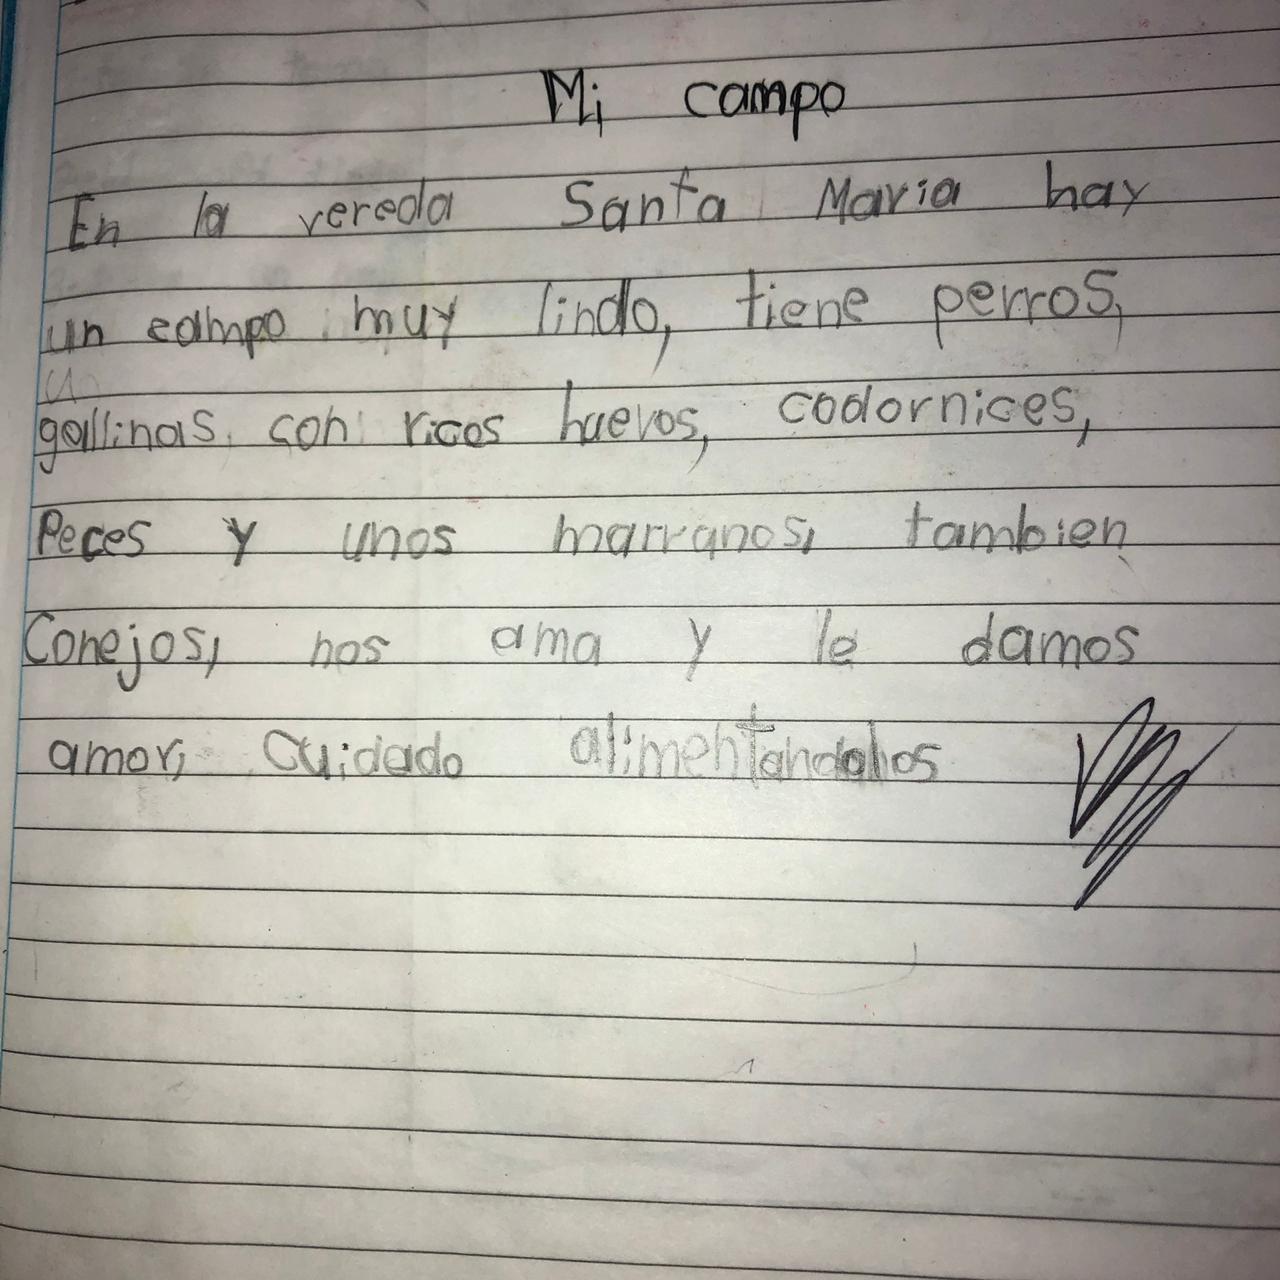 Mi campo
En la vereda Santa Maria hay
un campo muy lindo, tiene perros,
gallinas con ricos huevos, codornices,
Peces y unos marranos, tambien
Conejos, nos ama y le damos
amor, cuidado alimentandolos